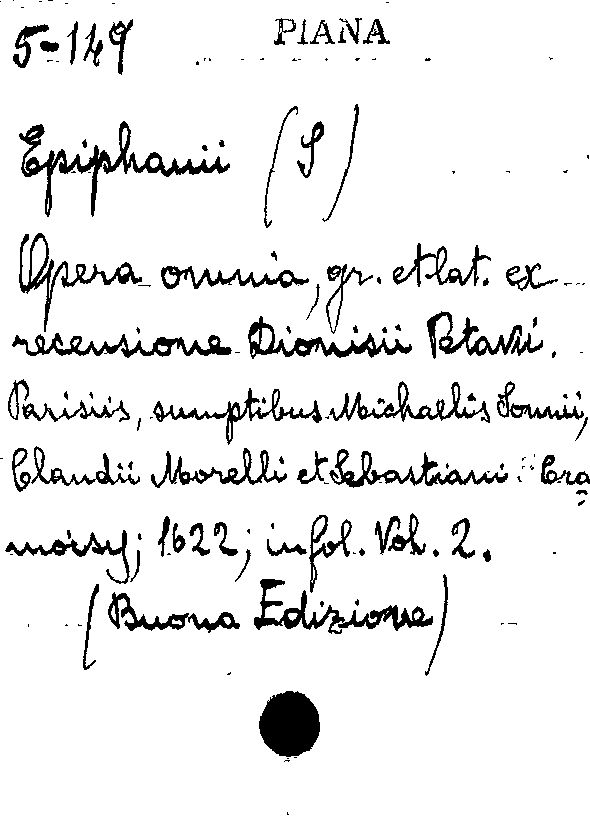 5-149 PIANA
Epiphanii (S)
Opera omnia, gr. et lat. ex
recensione Dionisii Petavii.
Parisiis, sumptibus Michaelis Sonnii,
Claudii Morelli et Sebastiani Cra
moisy; 1622; in fol. Vol. 2.
(Buona Edizione)